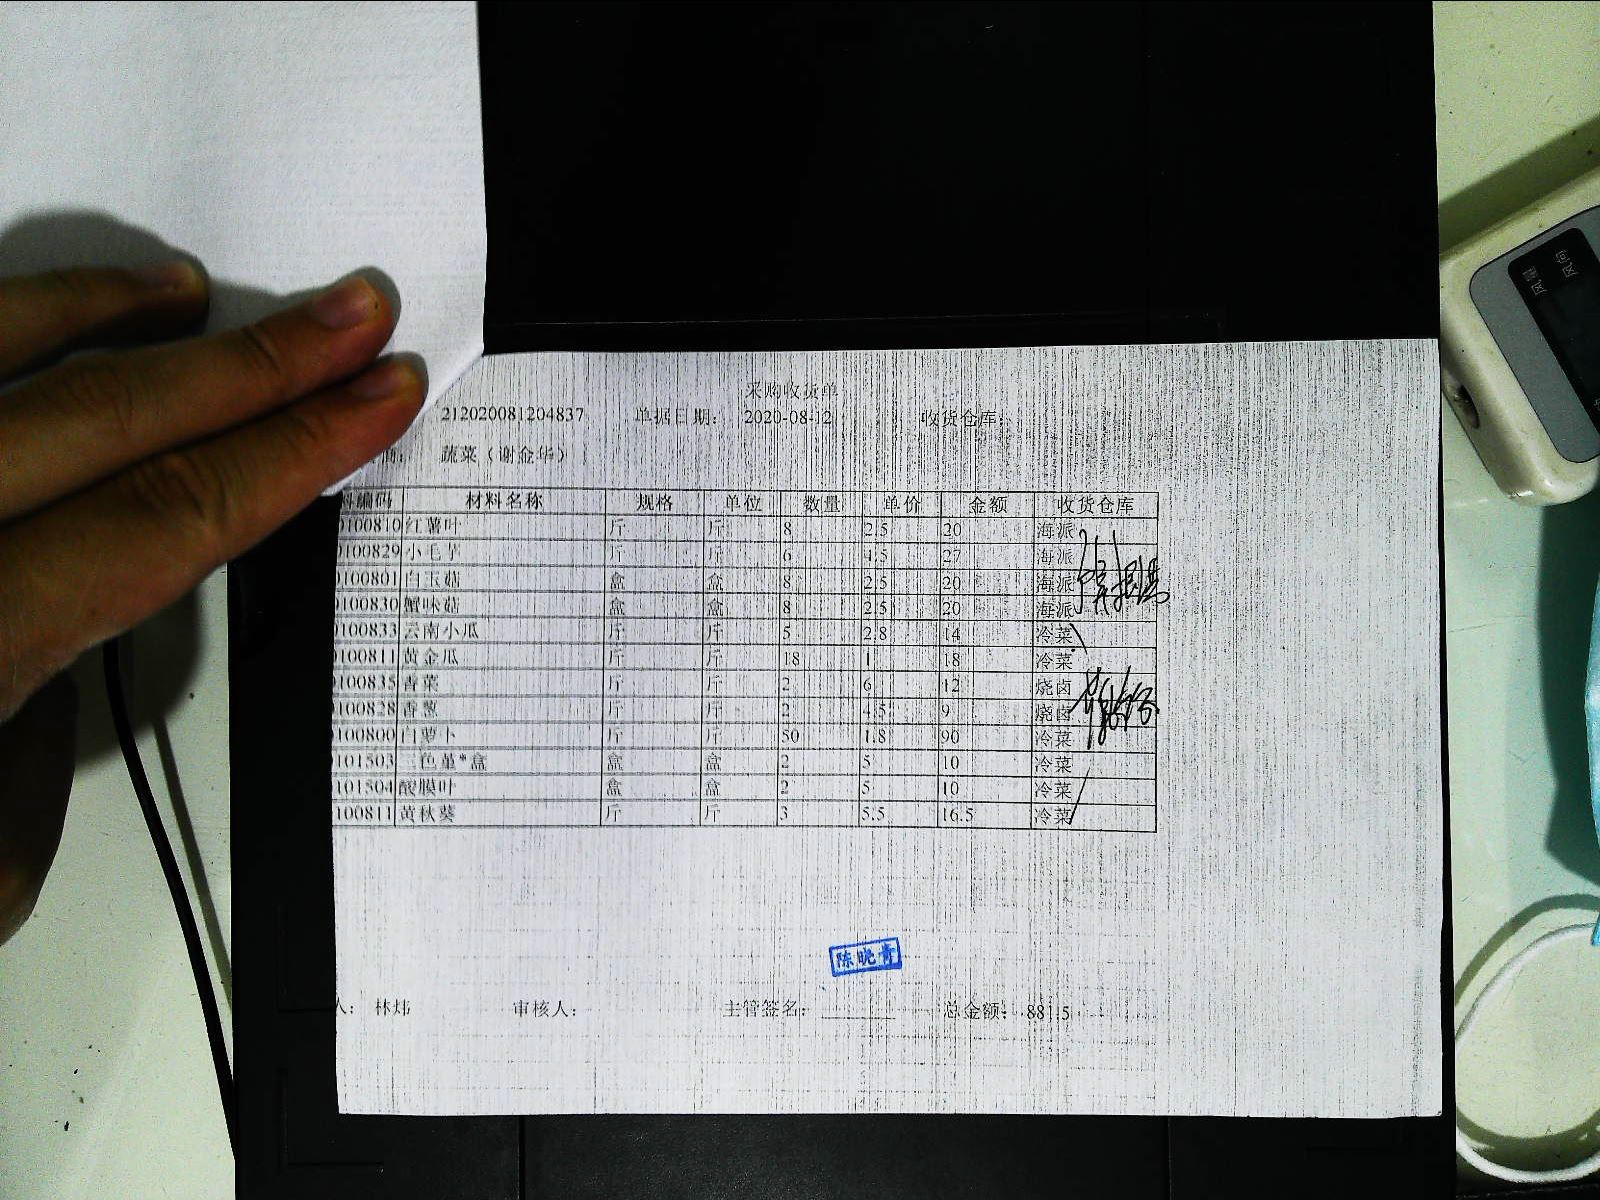 采购收货单
212020081204837 单据日期： 2020-08-12 收货仓库：
蔬菜（谢金华）
料编码 材料名称 规格 单位 数量 单价 金额 收货仓库
0100810 红薯叶 斤 斤 8 2.5 20 海派
0100829 小毛芋 斤 斤 6 4.5 27 海派
0100801 白玉菇 盒 盒 8 2.5 20 海派
0100830 蟹味菇 盒 盒 8 2.5 20 海派
0100833 云南小瓜 斤 斤 5 2.8 14 冷菜
0100811 黄金瓜 斤 斤 18 1 18 冷菜
0100835 香菜 斤 斤 2 6 12 烧卤
0100828 香葱 斤 斤 2 4.5 9 烧卤
0100800 白萝卜 斤 斤 50 1.8 90 冷菜
101503 三色堇*盒 盒 盒 2 5 10 冷菜
101504 酸膜叶 盒 盒 2 5 10 冷菜
100811 黄秋葵 斤 斤 3 5.5 16.5 冷菜
陈晓青
人： 林炜 审核人： 主管签名： 总金额： 881.5
风量 风向